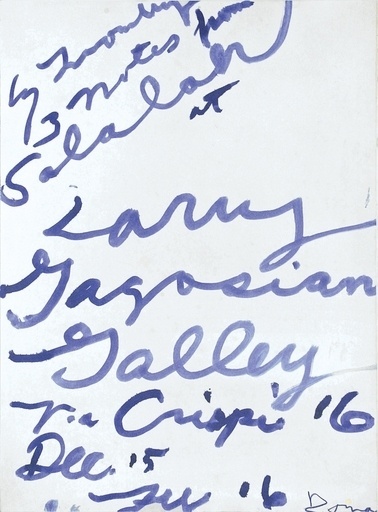 Cy Twombly
3 Notes from
Salalah
at
Larry
Gagosian
Galley
Via Crispi '16
Dec. 15
'16
Roma